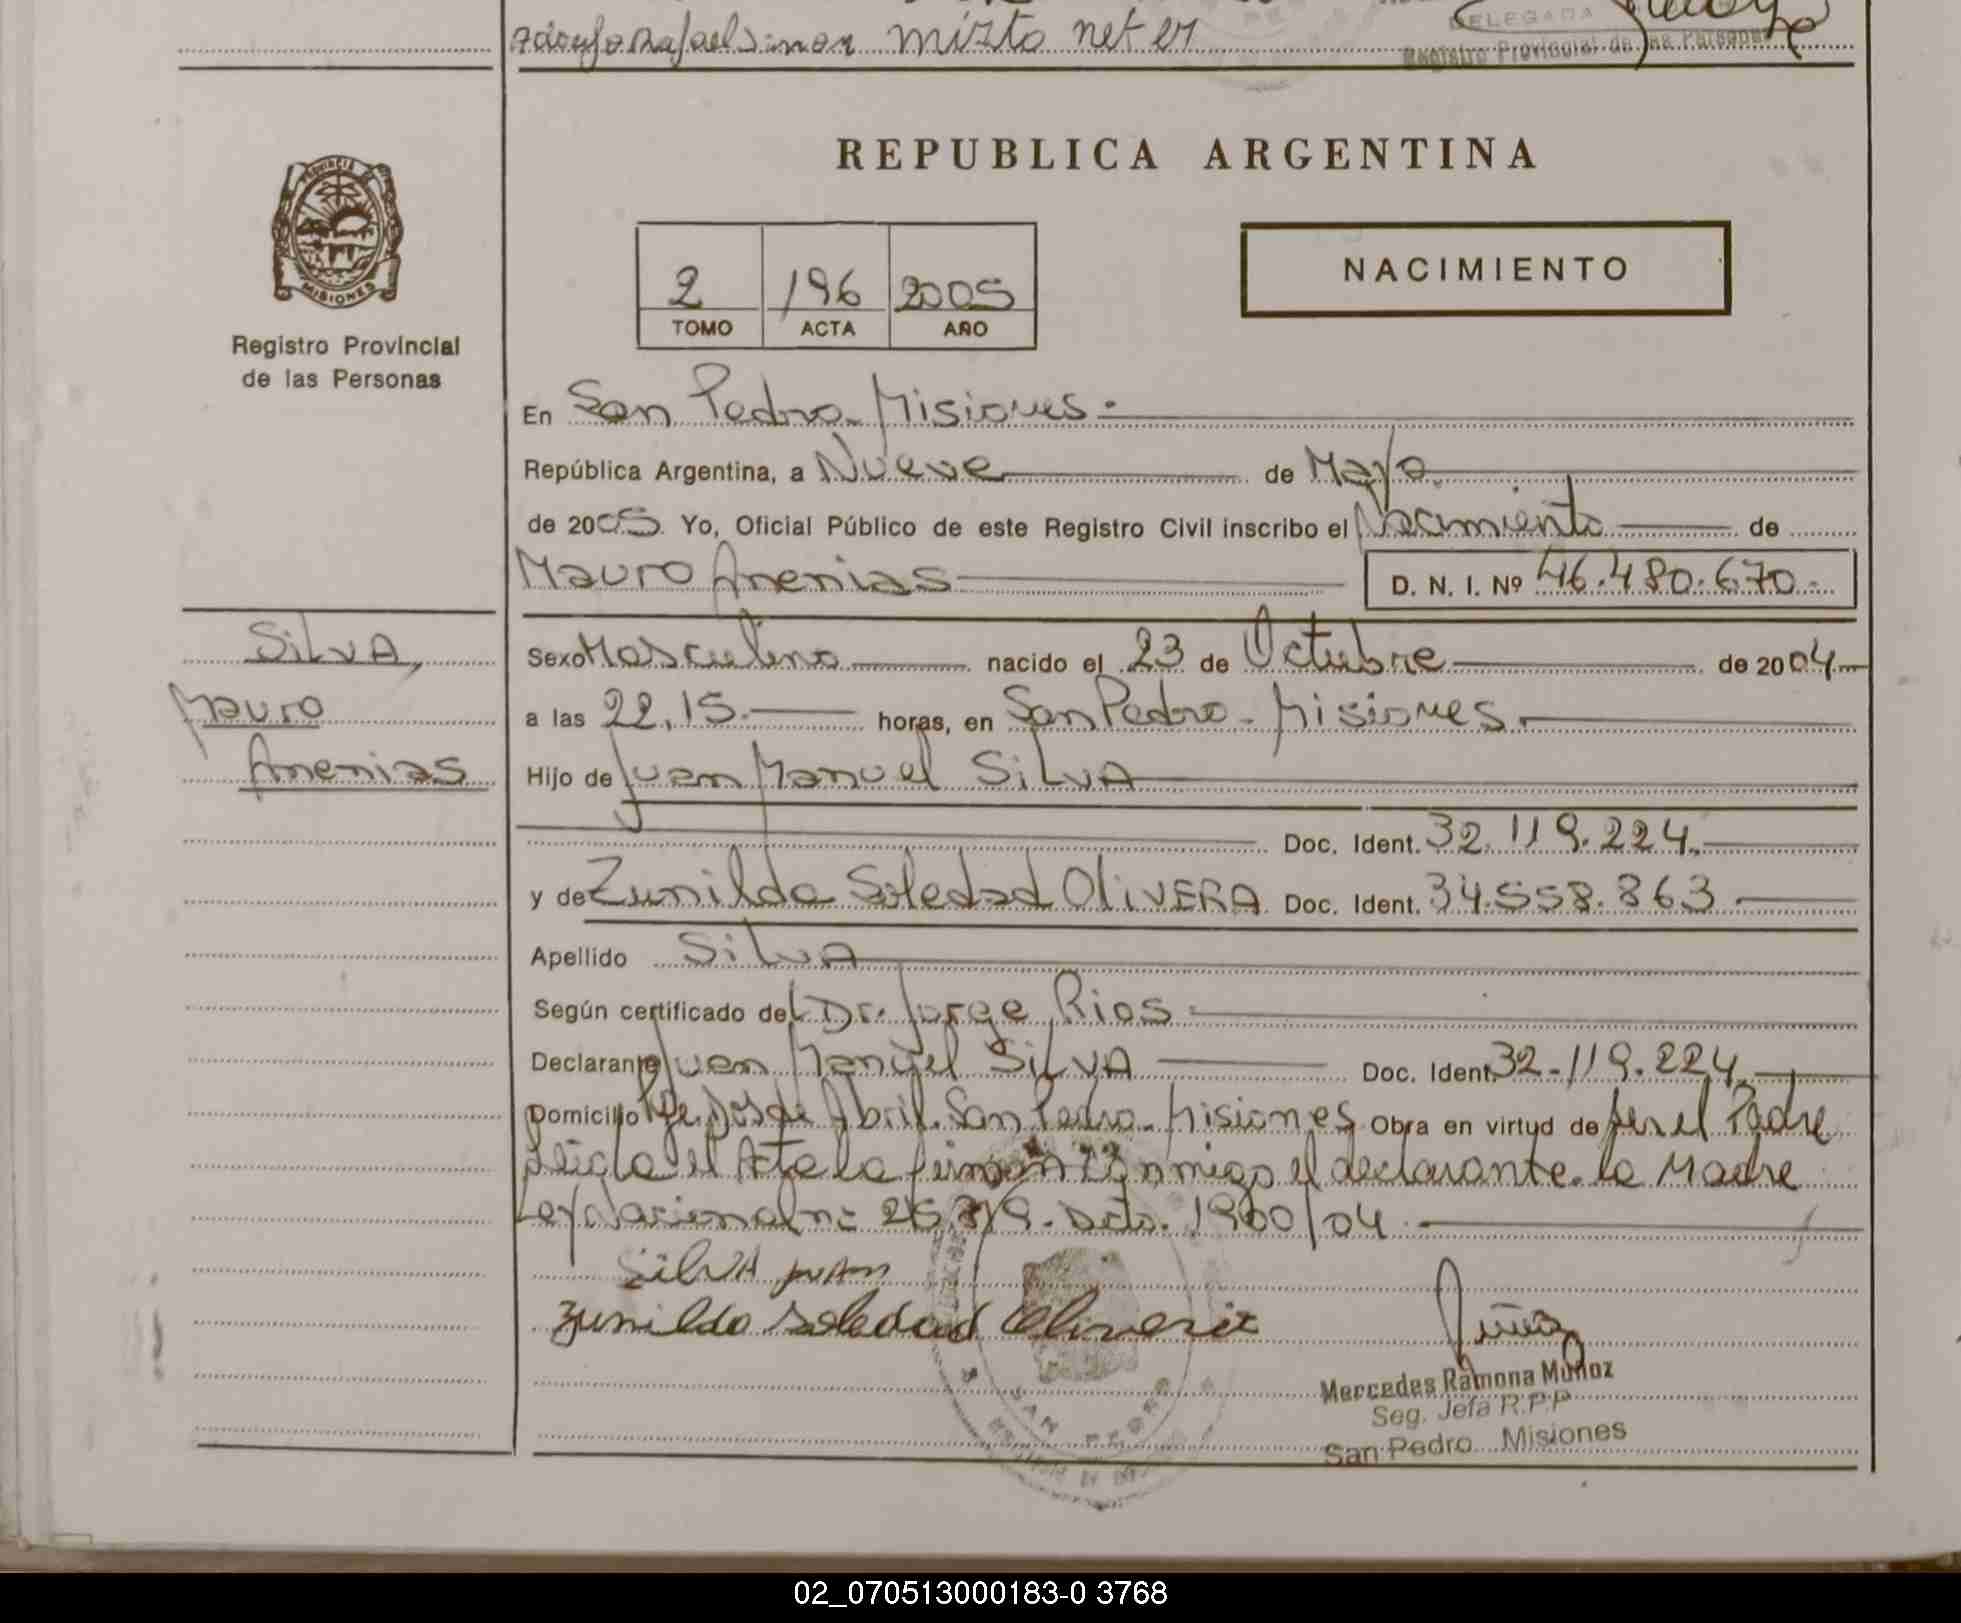 mizto net er
DELEGADA
Registro Provincial de las Personas
REPUBLICA ARGENTINA
PROVINCIA DE
MISIONES
Registro Provincial
de las Personas
2 196 2005
TOMO ACTA AÑO
NACIMIENTO
En San Pedro - Misiones.
República Argentina, a Nueve de Mayo
de 2005. Yo, Oficial Público de este Registro Civil inscribo el Nacimiento de
Mauro Ananias D. N. I. Nº 46.480.670.
SILVA,
Mauro
Ananias
Sexo Masculino nacido el 23 de Octubre de 2004
a las 22,15. horas, en San Pedro - Misiones.
Hijo de Juan Manuel SILVA
Doc. Ident. 32.119.224.
y de Zunilda Soledad OLIVERA Doc. Ident. 34.558.863
Apellido SILVA
Según certificado del Dr. Jorge Rios
Declarante Juan Manuel SILVA Doc. Ident. 32.119.224.
Domicilio Dos de Abril. San Pedro - Misiones Obra en virtud de ser el Padre
Leida el Acta la firman conmigo el declarante. la Madre
Ley Nacional nº Dcto. 1900/04
SILVA JUAN
Zunilda Soledad Olivera
Mercedes Ramona Muñoz
Seg. Jefa R.P.P
San Pedro Misiones
SAN PEDRO
02_070513000183-0 3768